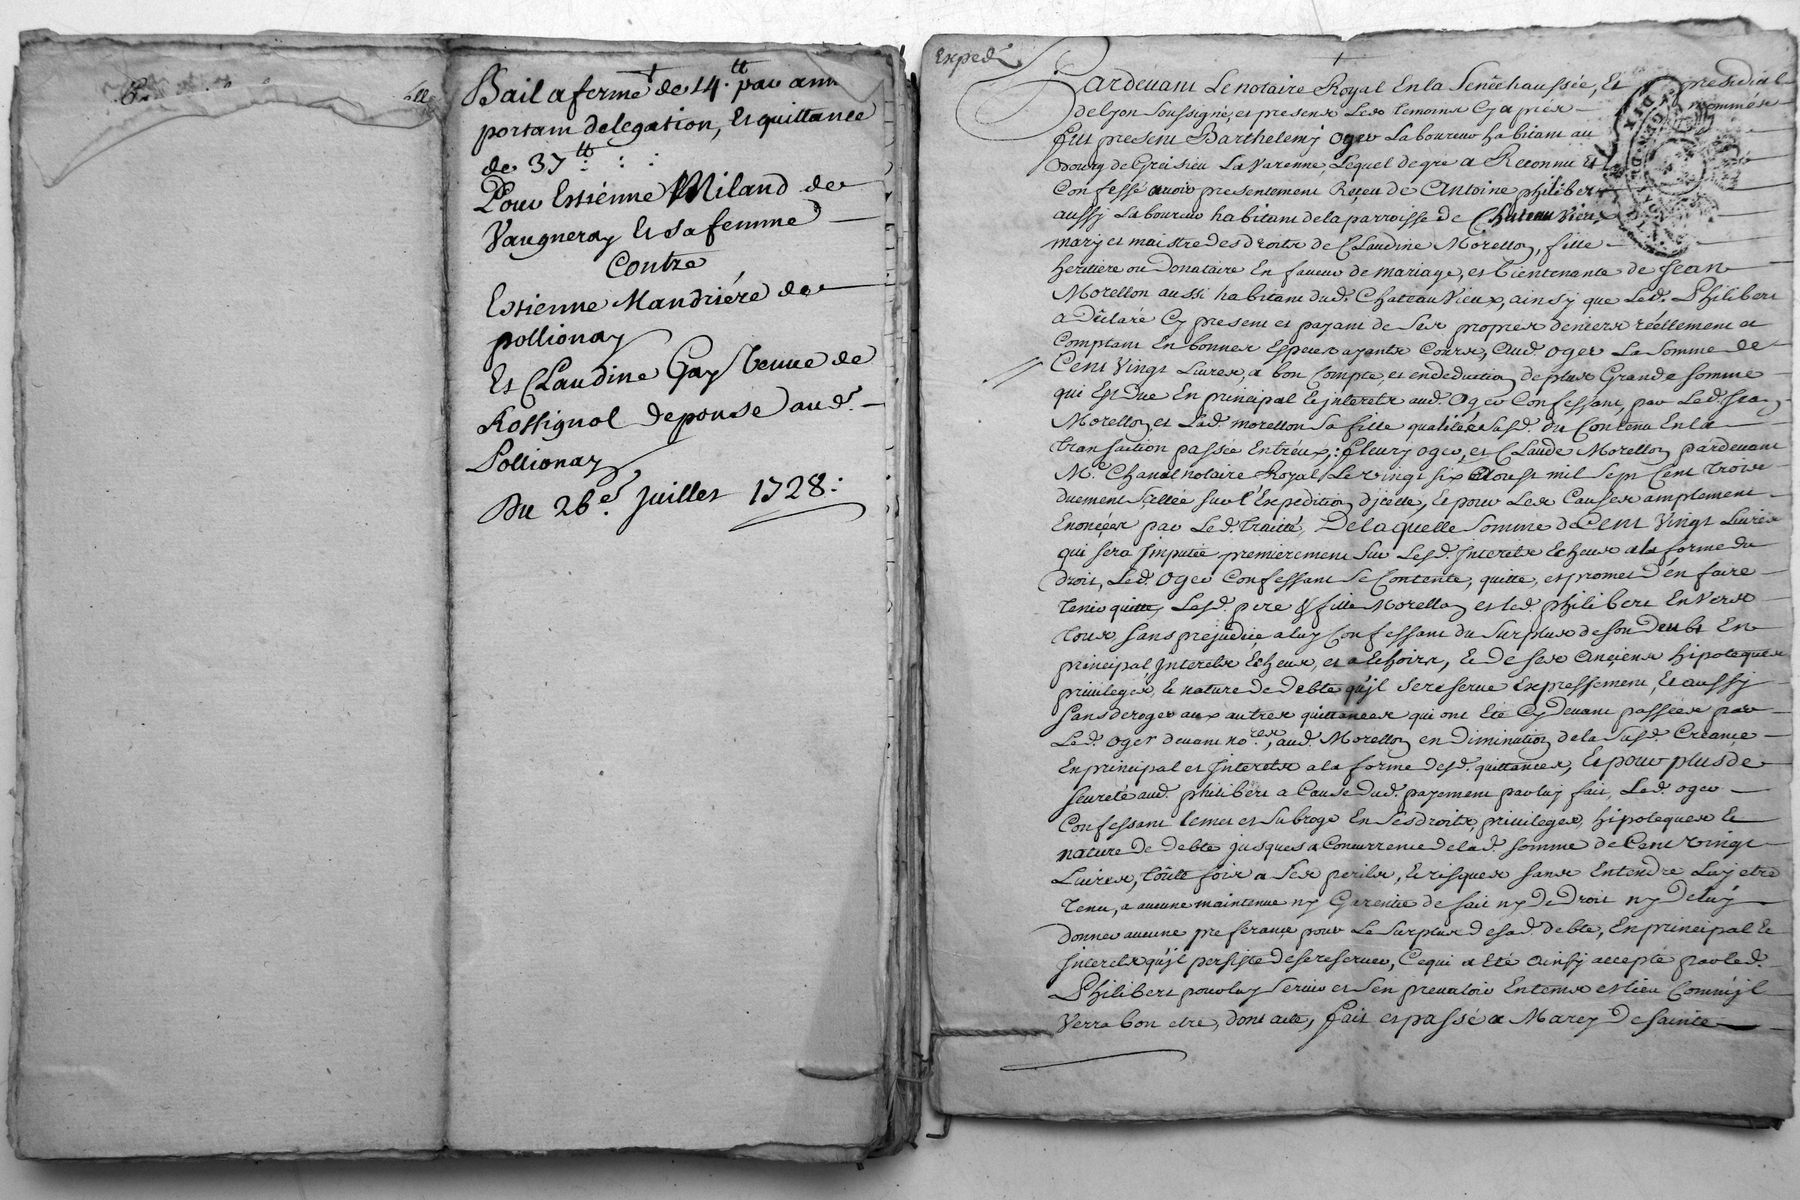 Bail a ferme de 14.tt par ann
portant delegation, Et quittance
de 37tt : :
Pour Estienne Miland de
Vaugneray Et sa femme
Contre
Estienne Mandriére de
pollionay
Et Claudine Gay Veuve de
Rossignol de ponse aud.
Pollionay
Du 26e. Juillet 1728:
Exped.
Pardevant Le notaire Royal En la Senechaussée, Et presidial
de Lyon Soussigné, et presents Les temoins Cy apres nommés
fut present Barthelemy Oger Laboureur habitant au
Bourg de Greisieu La Varenne, Lequel de gré a Reconnu Et
Confessé avoir presentement Reçeu de Antoine philibert
aussy Laboureur habitant de la parroisse de Chateau Vieux
mary et maistre des droits de Claudine Morellon, fille
heritiere ou Donataire En faveur de mariage, et bientenante de Jean
Morellon aussi habitant dud. Chateau Vieux, ainsy que Led. Philibert
a Déclaré Cy present et payant de Ses propres deniers réellement et
Comptant En bonnes Especes ayants Cours, aud. Oger La Somme de
Cent Vingt Livres, a bon Compte, et en deduction de plus Grande Somme
qui Est Due En principal Et interets aud. Oger Confessant, par Led. Jean
Morellon et Lad. morellon Sa fille qualitée Susd. du Contenu En la
transaction passée Entreux: fleury oger, et Claude Morellon pardevant
Me. Chanal notaire Royal Le vingt six aoust mil Sept Cent trois
duement Sçellée Sur l'Expedition dicelle, Et pour Les Causes amplement
Enonçées par Led. traitté, De laquelle Somme de Cent Vingt Livres
qui Sera Imputée premierement Sur Lesd. Interets Echeus a la forme du
droit, Led. Oger Confessant Se Contente, quitte, et promet d'en faire
tenir quitte, Lesd. pere & fille Morellon et led. philibert Envers
tous, Sans prejudice a luy Confessant du Surplus de Son Deubt En
principal, Interets Echeus, et a Echoirs, Et de Ses Anciens hipoteques
privileges, Et nature de debte qu'jl Se reserve Expressement, Et aussy
Sans deroger aux autres quittances qui ont Eté Cy Devant passées par
Led. Oger devant nores, aud. Morellon en Diminution de la Susd. Créance
En principal et Interets a la forme desd. quittances, Et pour plus de
Seureté aud. philibert a Cause dud. payement par luy fait, Led. oger
Confessant lemet et Subroge En Ses droits, privileges, hipoteques Et
nature de debte jusques a Concurrence de lad. Somme de Cent vingt
Livres, toûtte fois a Ses perils, Et risques Sans Entendre Luy etre
tenu, a aucune maintenue ny Garentie de fait ny de Droit ny de luy
donner aucune preferance pour Le Surplus de Sad. debte, En principal Et
Interets qu'jl persiste de se reserver, Ce qui a Eté Ainsy accepté par led.
Philibert pour luy Servir et S'en prevaloir En tems et lieu Comm'jl
Verra bon etre, dont acte, fait et passé a Marcy De Sainte